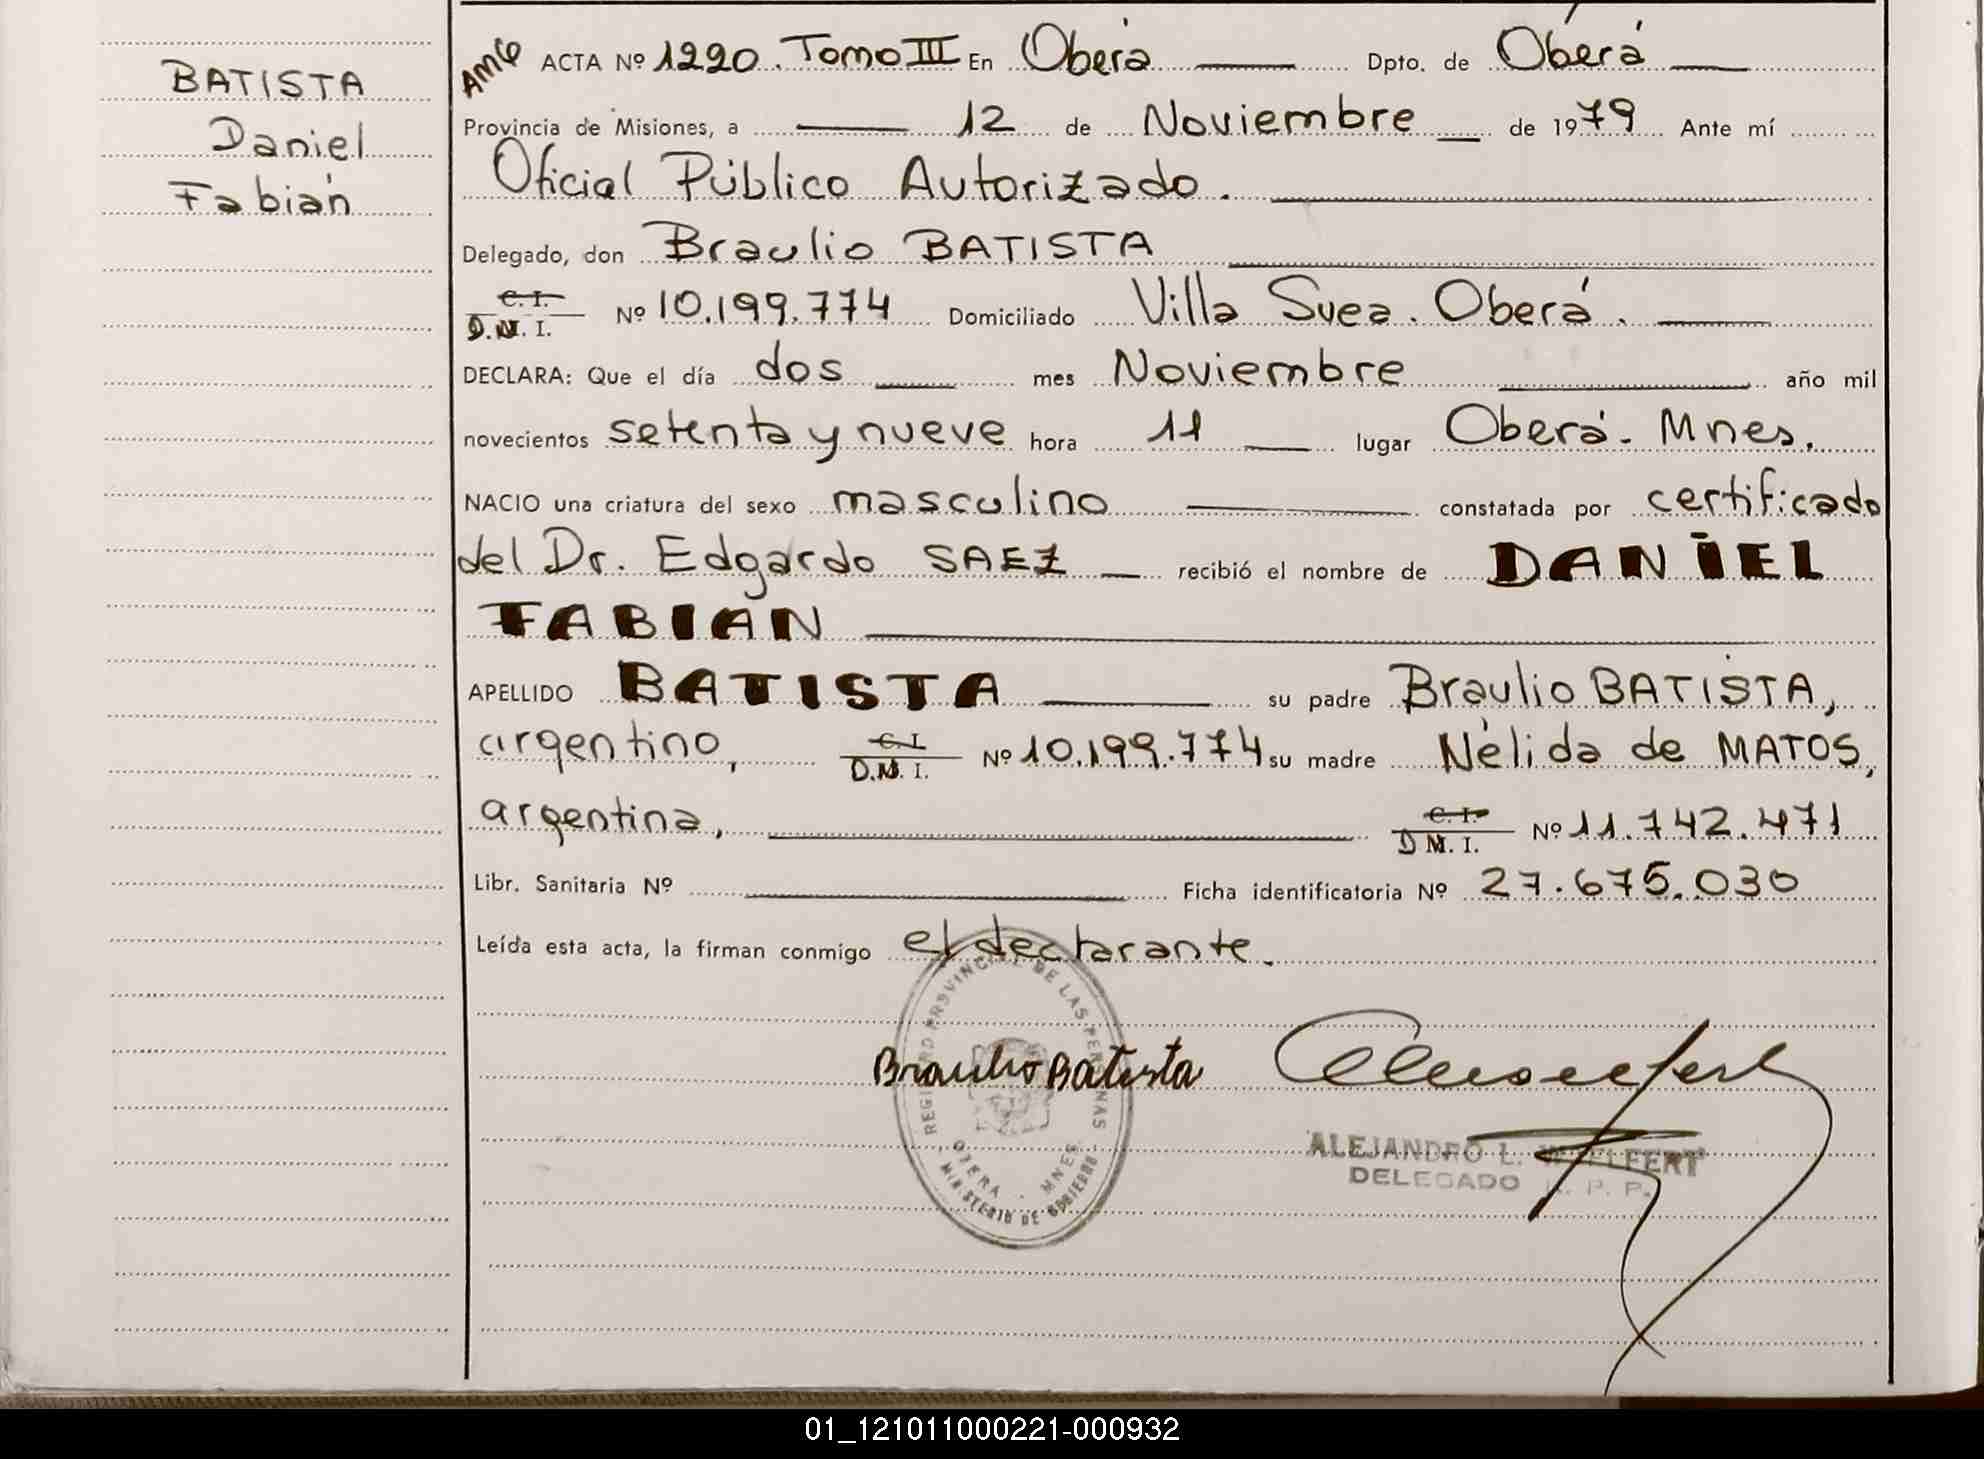 BATISTA
Daniel
Fabián
ACTA Nº 1220. Tomo III En Oberá Dpto. de Oberá
Provincia de Misiones, a 12 de Noviembre de 1979 Ante mí
Oficial Público Autorizado.
Delegado, don Braulio BATISTA
C. I.
D.N.I. Nº 10.199.774 Domiciliado Villa Svea. Oberá.
DECLARA: Que el día dos mes Noviembre año mil
novecientos setenta y nueve hora 11 lugar Oberá. Mnes.
NACIO una criatura del sexo masculino constatada por certificado
del Dr. Edgardo SAEZ recibió el nombre de DANIEL
FABIÁN
APELLIDO BATISTA su padre Braulio BATISTA,
argentino, C. I. D.N.I. Nº 10.199.774 su madre Nélida de MATOS,
argentina, C. I. D N. I. Nº 11.742.471
Libr. Sanitaria Nº Ficha identificatoria Nº 27.675.030
Leída esta acta, la firman conmigo el declarante.
REGISTRO PROVINCIAL DE LAS PERSONAS
Braulio Batista
OBERA - MNES
MINISTERIO DE GOBIERNO
ALEJANDRO L.
DELEGADO R. P. P.
01_121011000221-000932